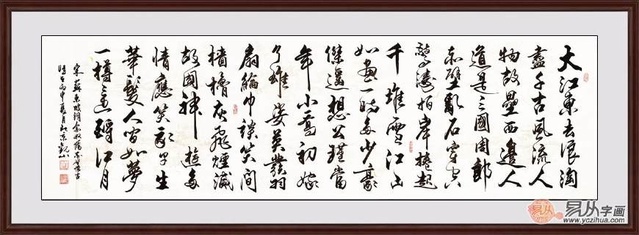 大江東去浪淘
盡千古風流人
物故壘西邊人
道是三國周郎
赤壁亂石穿空
驚濤拍岸捲起
千堆雪江山
如畫一時多少豪
傑遙想公瑾當
年小喬初嫁
了雄姿英發羽
扇綸巾談笑間
檣櫓灰飛煙滅
故國神遊多
情應笑我早生
華髮人間如夢
一樽還酹江月
宋蘇東坡詞念奴嬌赤壁懷古
時在丙申夏月於京
易从字画
www.yczihua.com